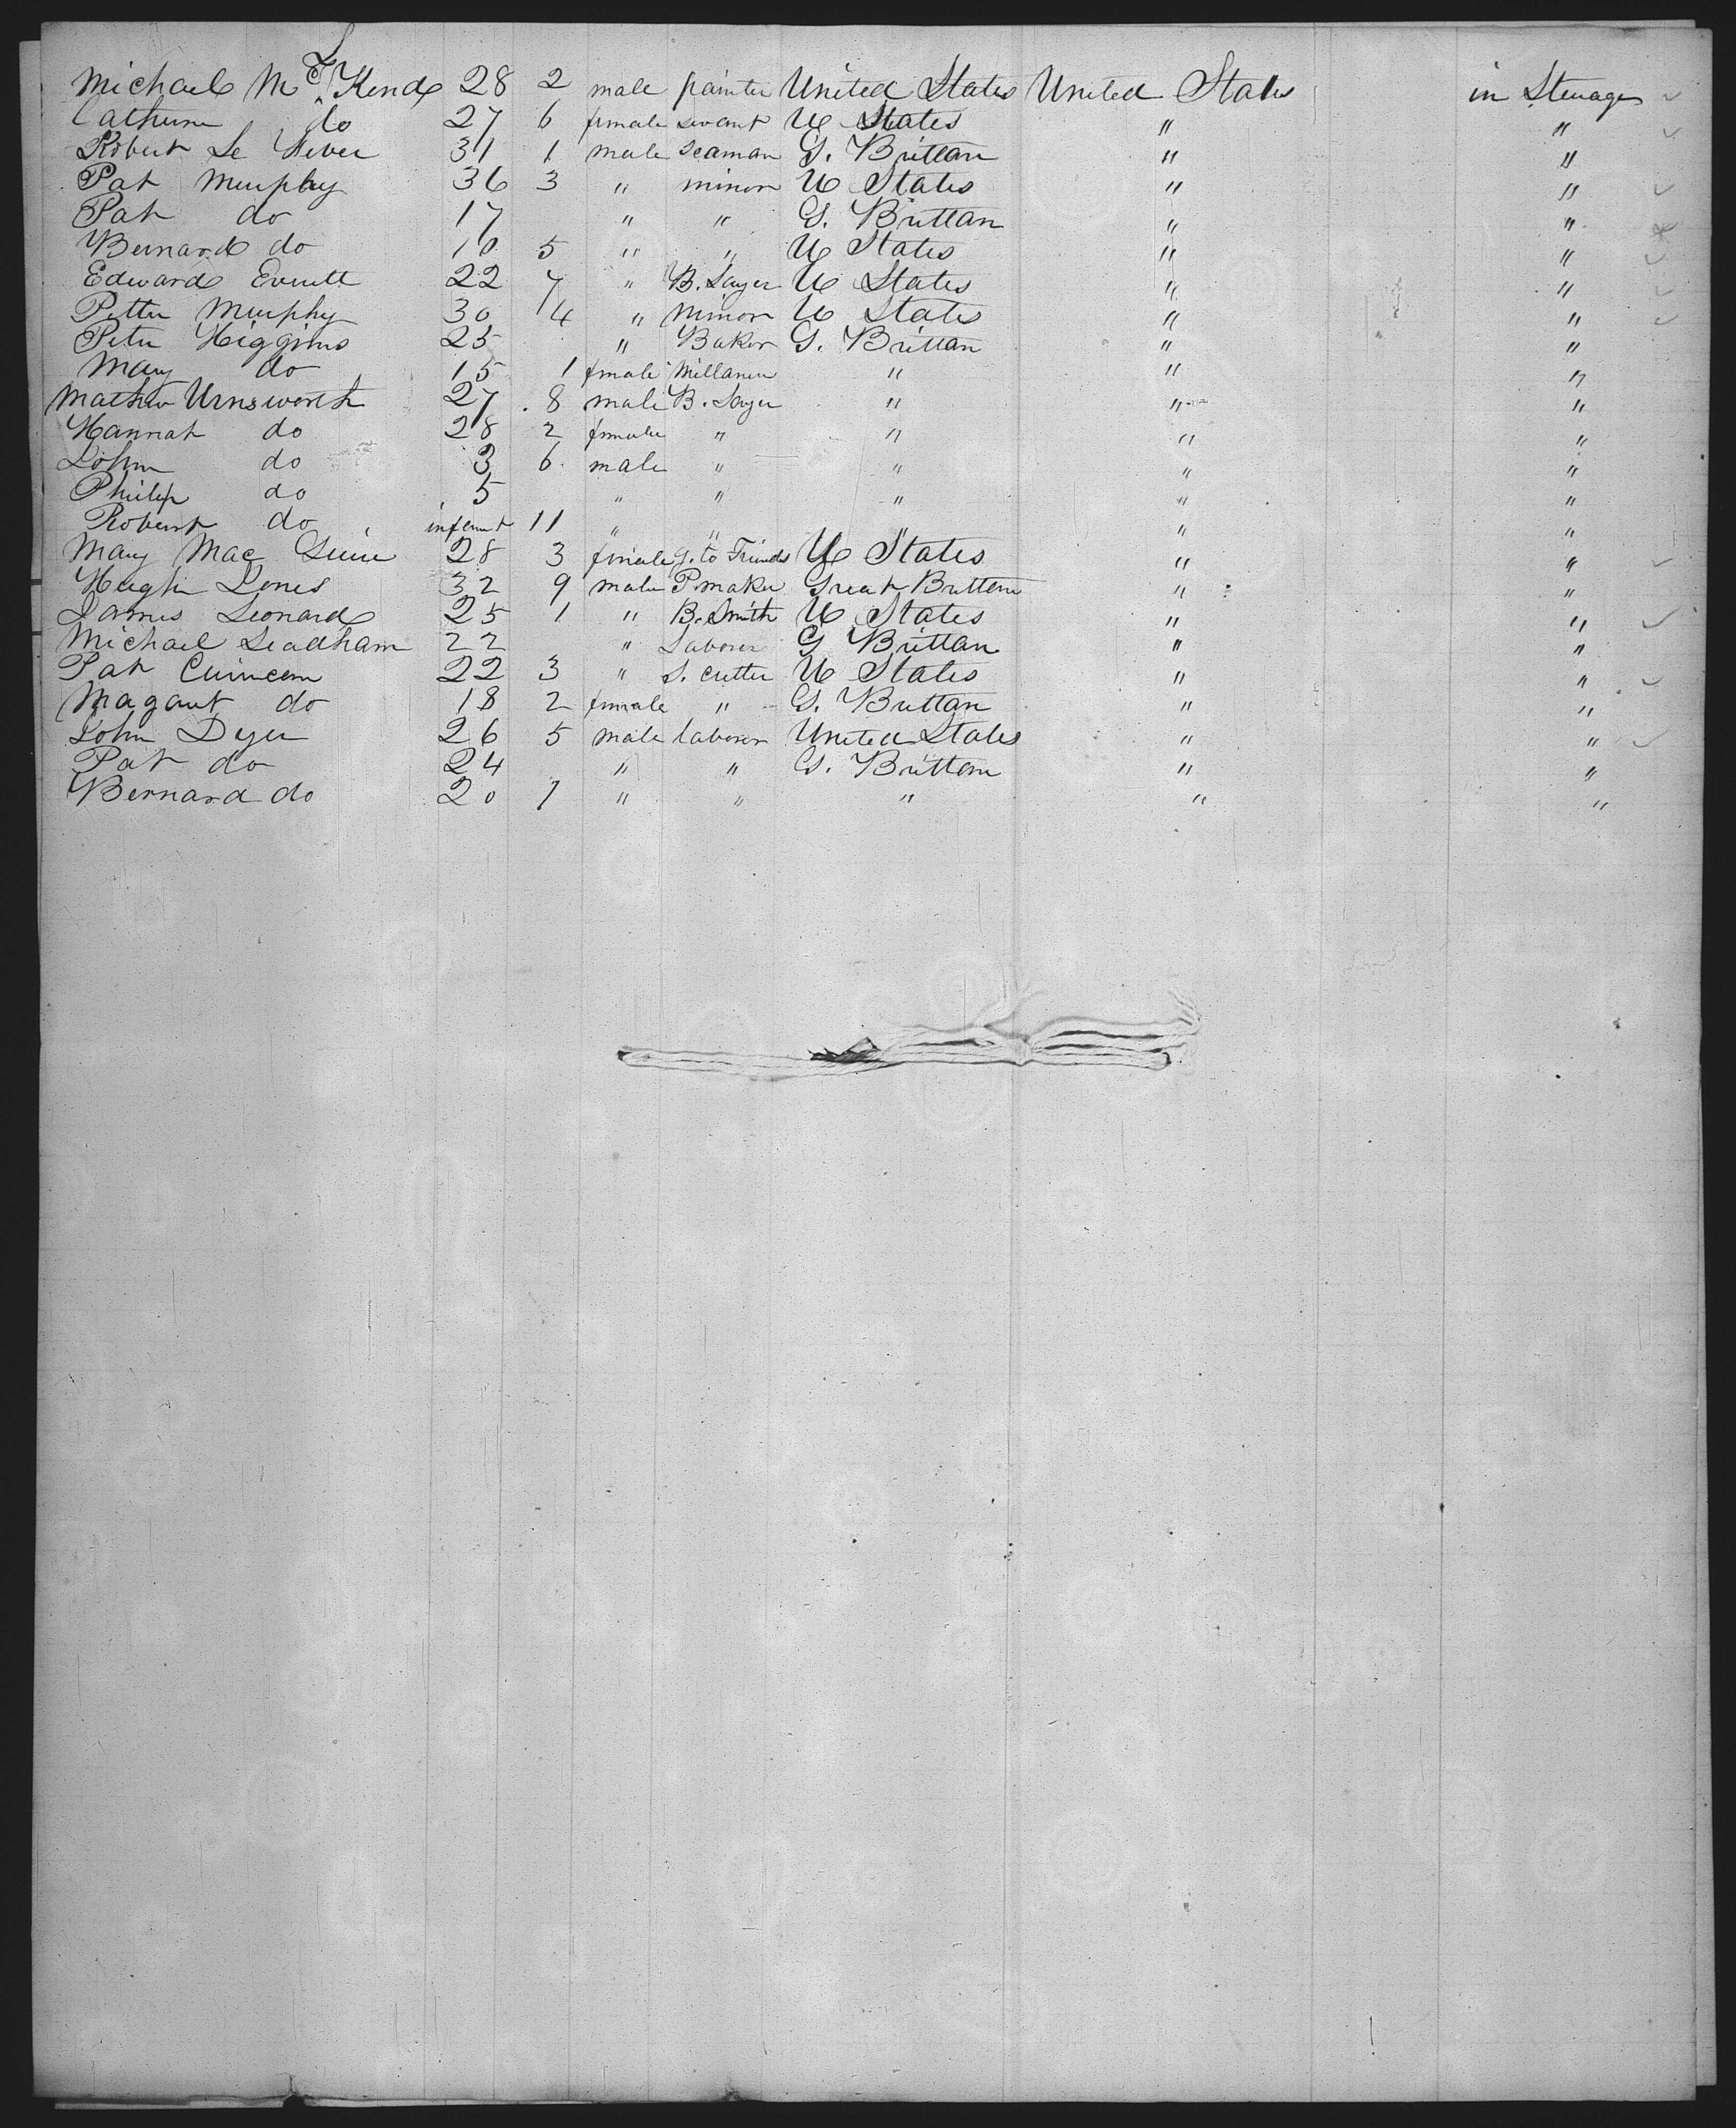 Michael Mc Kend 28 2 male painter United States United States in Steuage
Catherin do 27 6 female servant U States " "
Robert Le 31 1 male seaman G. Brittan " "
Pat Murphy 36 3 " minor U States " "
Pat do 17 " " G. Brittan " "
Bernard do 10 5 " " U States " "
Edward Everett 22 7 " B. Layer U States " "
Petter Murphy 30 4 " minor U States " "
Peter Higgins 25 " Baker G. Brittan " "
Mary do 15 1 female Millaner " " "
Mathew Urnsworth 27 8 male B. Layer " " "
Hannah do 28 2 female " " " "
John do 3 6 male " " " "
Philip do 5 " " " " "
Robert do infant 11 " " " " "
Mary Mac 28 3 female g. to Friends U States " "
Hugh Jones 32 9 male P maker Great Brittem " "
James Leonard 25 1 " B. Smith U States " "
Michael Leadham 22 " Laborer G Brittan " "
Pat 22 3 " S. cutter U States " "
Magaret do 18 2 female " G. Brittan " "
John Dyer 26 5 male laborer United States " "
Pat do 24 " " G. Brittem " "
Bernard do 20 7 " " " " "